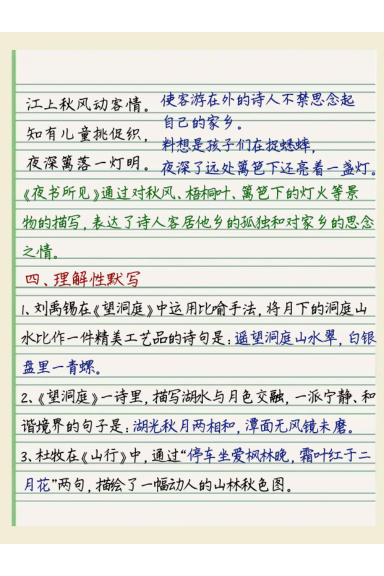 江上秋风动客情。使客游在外的诗人不禁思念起
自己的家乡。
知有儿童挑促织,
料想是孩子们在捉蟋蟀,
夜深篱落一灯明。夜深了远处篱笆下还亮着一盏灯。
《夜书所见》通过对秋风、梧桐叶、篱笆下的灯火等景
物的描写,表达了诗人客居他乡的孤独和对家乡的思念
之情。
四、理解性默写
1、刘禹锡在《望洞庭》中运用比喻手法,将月下的洞庭山
水比作一件精美工艺品的诗句是:遥望洞庭山水翠,白银
盘里一青螺。
2、《望洞庭》一诗里,描写湖水与月色交融,一派宁静、和
谐境界的句子是:湖光秋月两相和,潭面无风镜未磨。
3、杜牧在《山行》中,通过“停车坐爱枫林晚,霜叶红于二
月花”两句,描绘了一幅动人的山林秋色图。